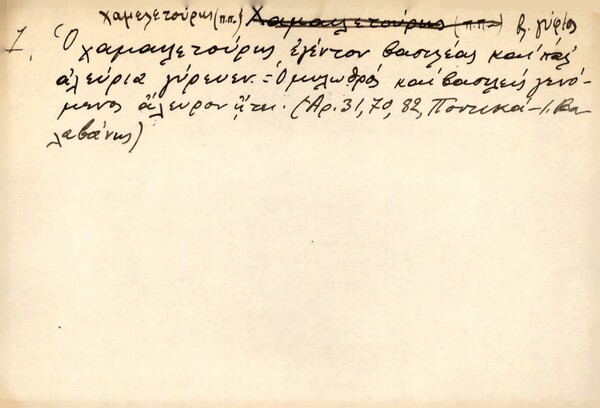 χαμελετούρης (π.π.) Χαμαιλετούρης (π.π.) βλ. γύρισ
1. Ὁ χαμαιλετούρης ἐγέντον βασιλέας καὶ παλ'
ἀλεύρια γύρευεν. = Ὁ μυλωθρός καὶ βασιλεύς γενό-
μενος ἄλευρον ᾔτει. (Ἀρ. 31, 70, 82, Ποντικά - Ι. Βα-
λαβάνης)